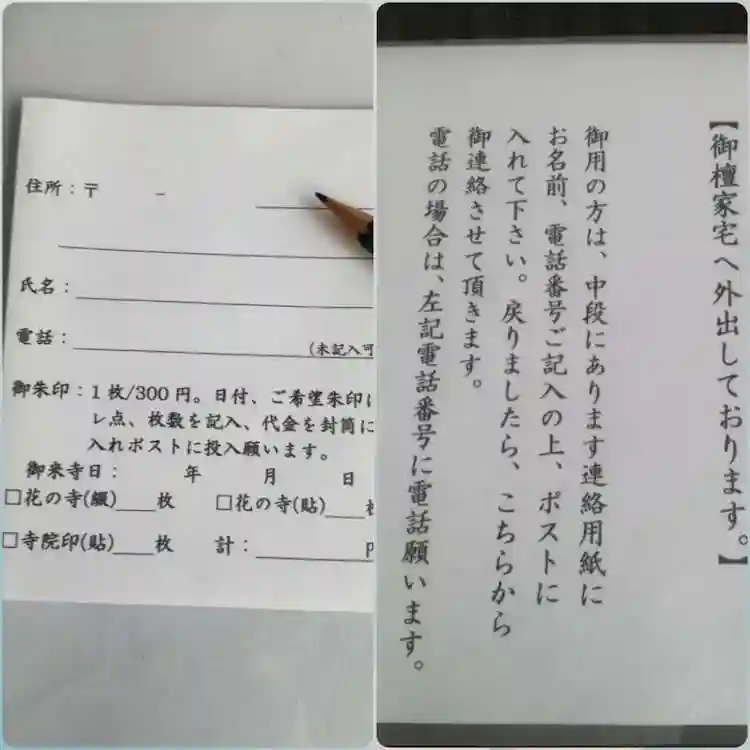 住所：〒　　－
氏名：
電話：
(未記入可
御朱印：1枚/300円。日付、ご希望朱印に
レ点、枚数を記入、代金を封筒に
入れポストに投入願います。
御来寺日：　　年　　月　　日
□花の寺(綴)　　枚　□花の寺(貼)
□寺院印(貼)　　枚　計：
【御檀家宅へ外出しております。】
御用の方は、中段にあります連絡用紙に
お名前、電話番号ご記入の上、ポストに
入れて下さい。戻りましたら、こちらから
御連絡させて頂きます。
電話の場合は、左記電話番号に電話願います。